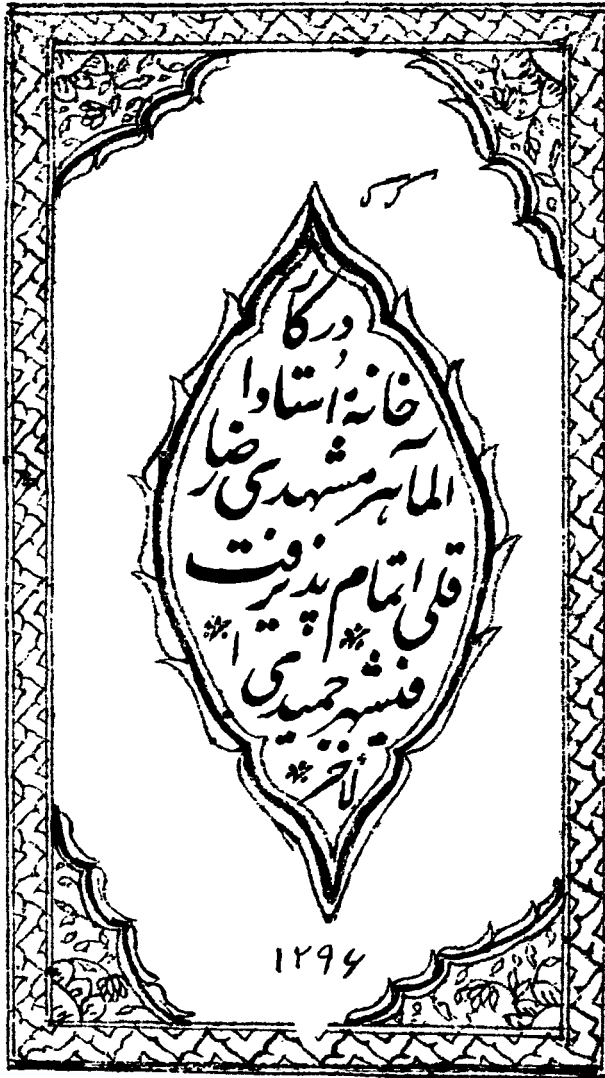 در کار
خانهٔ استاد ا
لماهر مشهدی رضا
قلی اتمام پذیرفت
فی شهر جمیدی ا
لأخر
۱۲۹۶